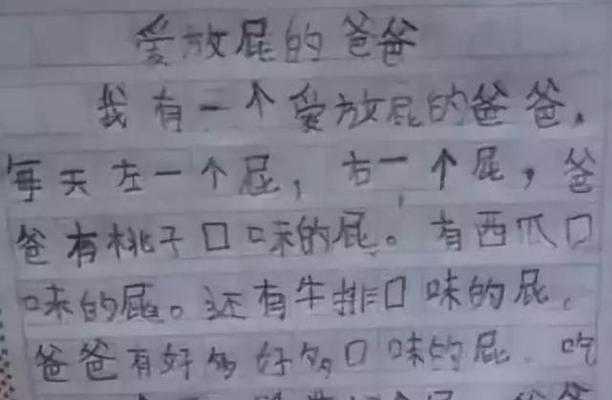 爱放屁的爸爸
我有一个爱放屁的爸爸。
每天左一个屁，右一个屁，爸
爸有桃子口味的屁。有西瓜口
味的屁。还有牛排口味的屁。
爸爸有好多好多口味的屁。吃